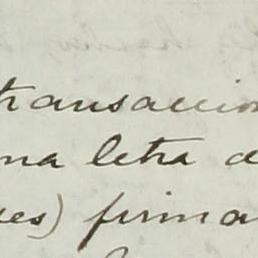 transaccion
una letra d
ues) firma